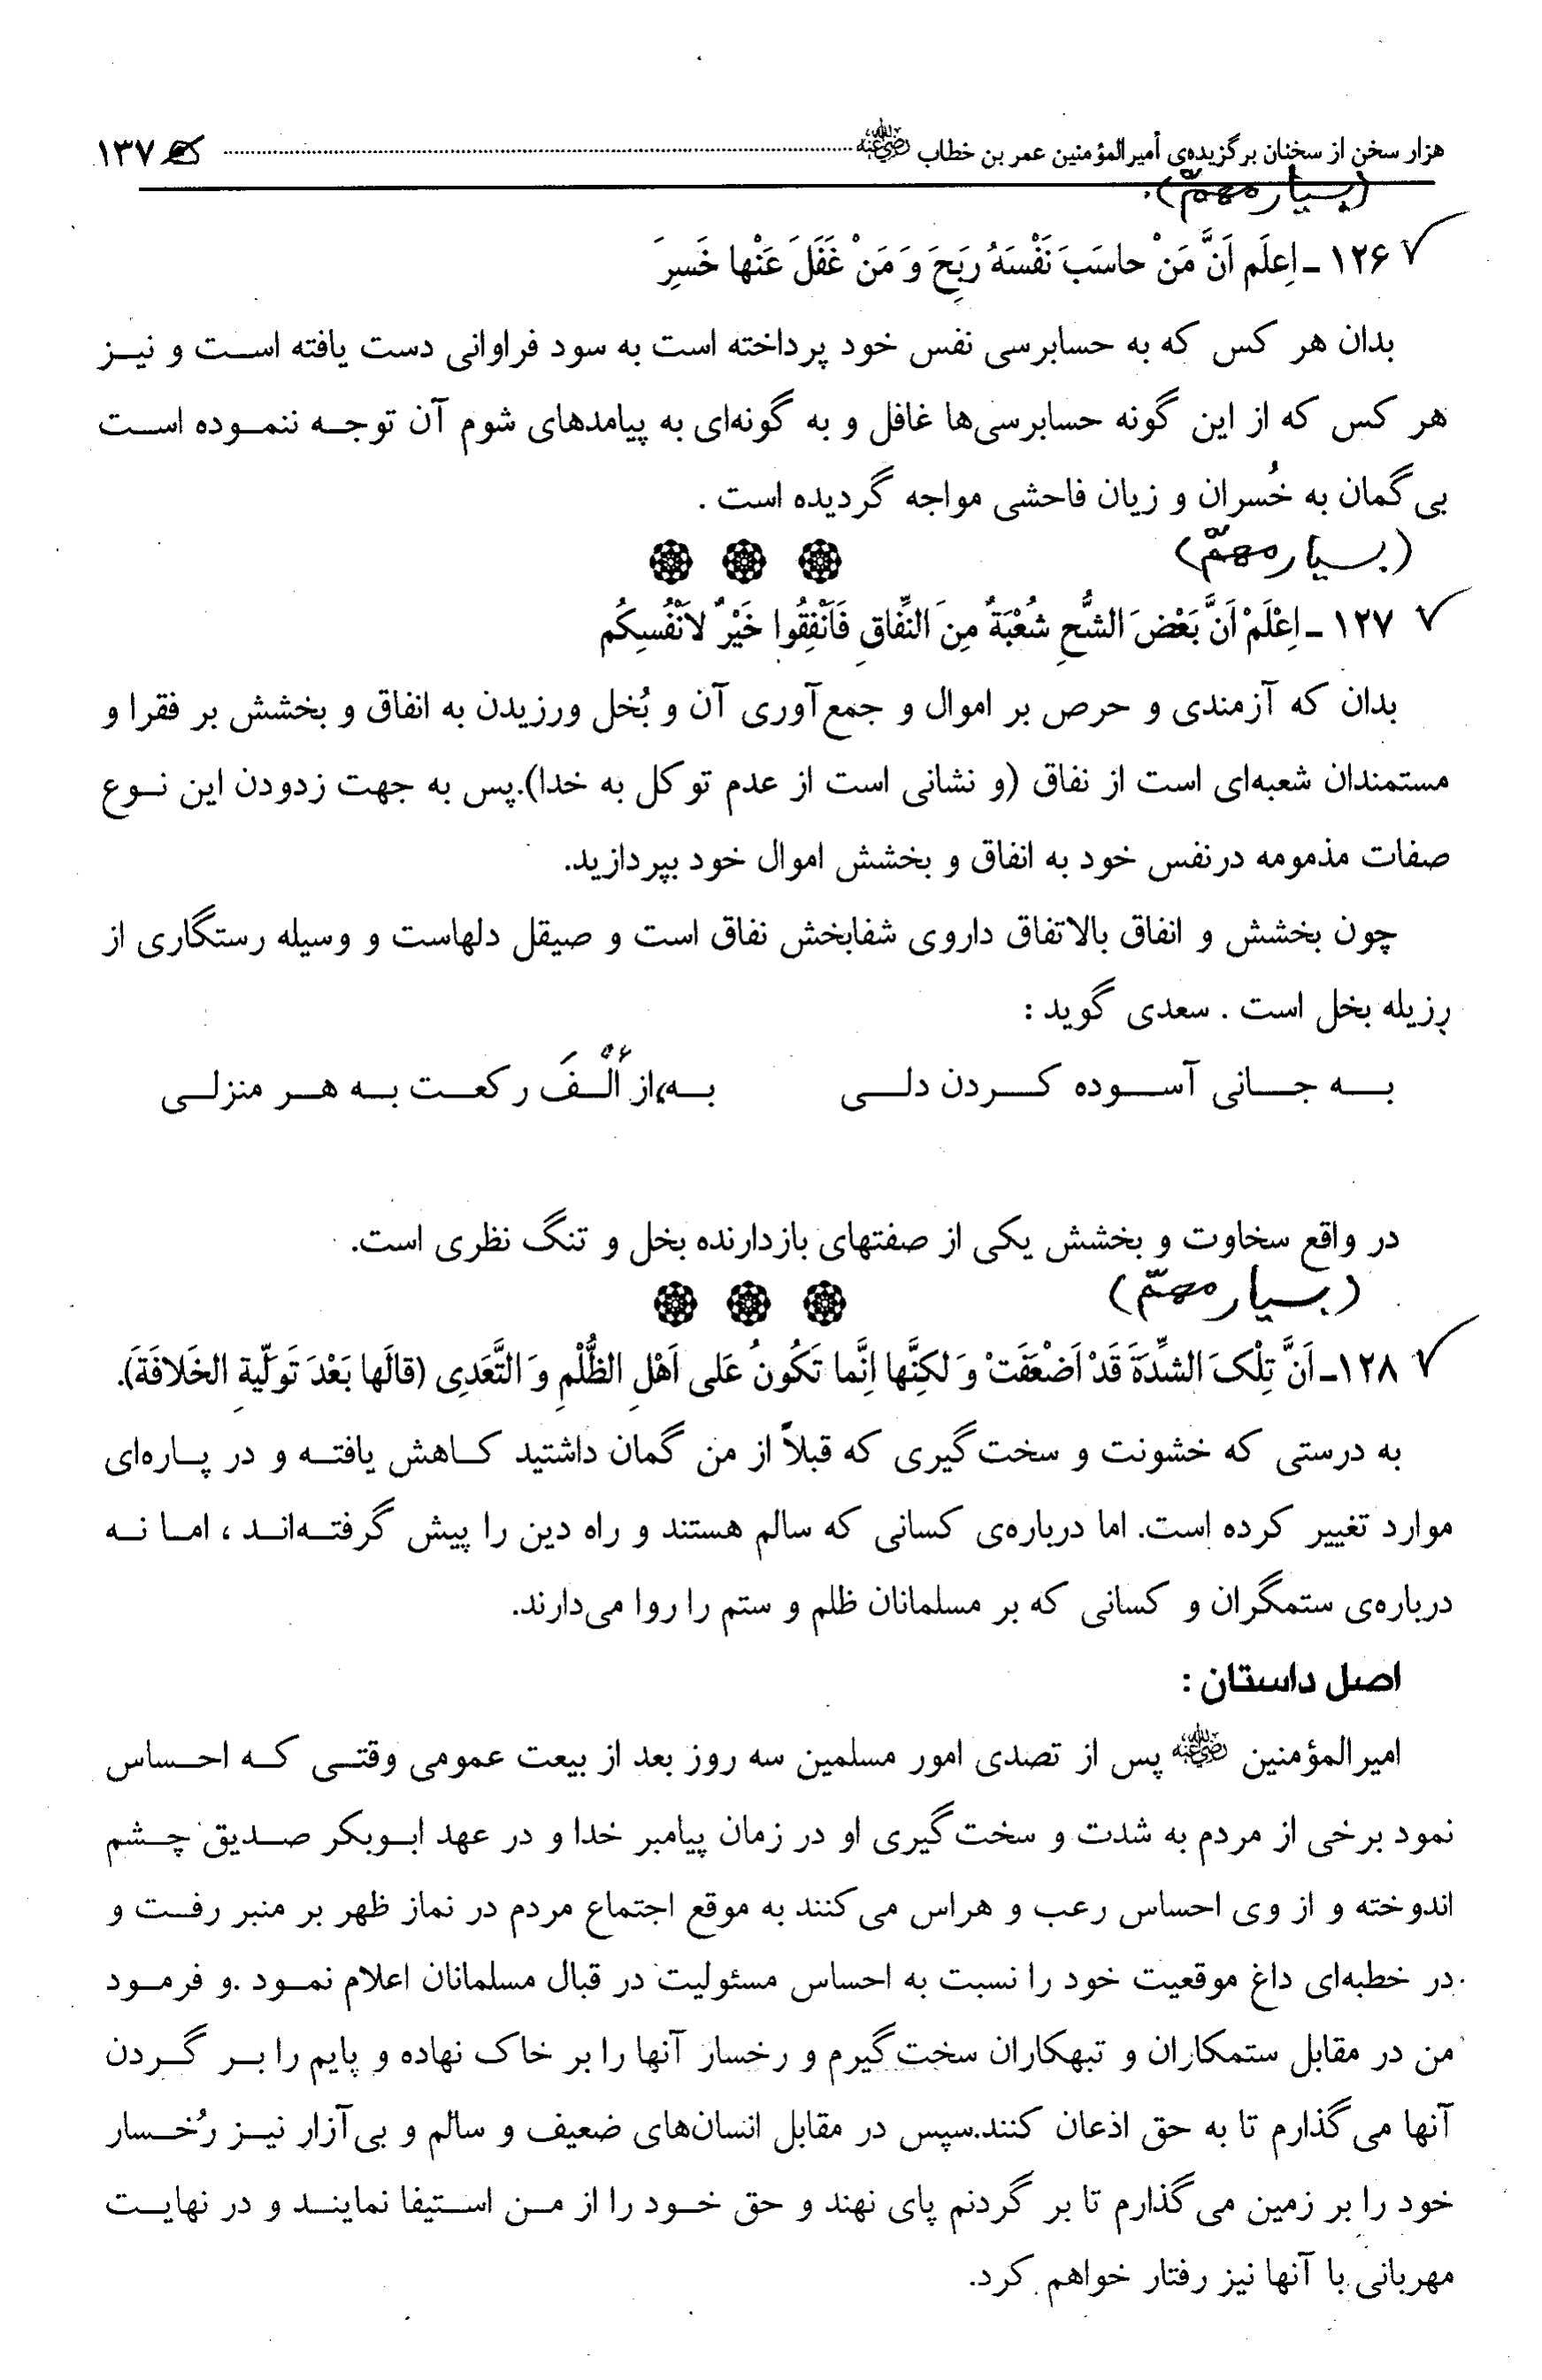 هزار سخن از سخنان برگزیده‌ی أمیرالمؤمنین عمر بن خطاب رضی‌الله‌عنه ۱۳۷
(بسیار مهمّ).
۱۲۶ ـ اِعلَم اَنَّ مَنْ حاسَبَ نَفْسَهُ رَبِحَ وَ مَنْ غَفَلَ عَنْها خَسِرَ
بدان هر کس که به حسابرسی نفس خود پرداخته است به سود فراوانی دست یافته است و نیز
هر کس که از این گونه حسابرسی‌ها غافل و به گونه‌ای به پیامدهای شوم آن توجه ننموده است
بی گمان به خُسران و زیان فاحشی مواجه گردیده است .
(بسیار مهمّ)
۱۲۷ ـ اِعْلَمْ اَنَّ بَعْضَ الشُّحِ شُعْبَةٌ مِنَ النِّفاقِ فَاَنْفِقُوا خَیْرٌ لاَنْفُسِکُم
بدان که آزمندی و حرص بر اموال و جمع‌آوری آن و بُخل ورزیدن به انفاق و بخشش بر فقرا و
مستمندان شعبه‌ای است از نفاق (و نشانی است از عدم توکل به خدا).پس به جهت زدودن این نوع
صفات مذمومه درنفس خود به انفاق و بخشش اموال خود بپردازید.
چون بخشش و انفاق بالاتفاق داروی شفابخش نفاق است و صیقل دلهاست و وسیله رستگاری از
رزیله بخل است . سعدی گوید :
به جانی آسوده کردن دلی به از اَلْفَ رکعت به هر منزلی
در واقع سخاوت و بخشش یکی از صفتهای بازدارنده بخل و تنگ نظری است.
(بسیار مهمّ)
۱۲۸ـ اَنَّ تِلْکَ الشِّدَةَ قَدْ اَضْعَفَتْ وَ لکِنَّها اِنَّما تَکُونُ عَلی اَهْلِ الظُّلْمِ وَ التَّعَدِی (قالَها بَعْدَ تَولّیةِ الخَلافَةَ).
به درستی که خشونت و سخت گیری که قبلاً از من گمان داشتید کاهش یافته و در پاره‌ای
موارد تغییر کرده است. اما درباره‌ی کسانی که سالم هستند و راه دین را پیش گرفته‌اند ، اما نه
درباره‌ی ستمگران و کسانی که بر مسلمانان ظلم و ستم را روا می‌دارند.
اصل داستان :
امیرالمؤمنین رضی‌الله‌عنه پس از تصدی امور مسلمین سه روز بعد از بیعت عمومی وقتی که احساس
نمود برخی از مردم به شدت و سخت گیری او در زمان پیامبر خدا و در عهد ابوبکر صدیق چشم
اندوخته و از وی احساس رعب و هراس می کنند به موقع اجتماع مردم در نماز ظهر بر منبر رفت و
در خطبه‌ای داغ موقعیت خود را نسبت به احساس مسئولیت در قبال مسلمانان اعلام نمود .و فرمود
من در مقابل ستمکاران و تبهکاران سخت گیرم و رخسار آنها را بر خاک نهاده و پایم را بر گردن
آنها می گذارم تا به حق اذعان کنند.سپس در مقابل انسان‌های ضعیف و سالم و بی‌آزار نیز رُخسار
خود را بر زمین می گذارم تا بر گردنم پای نهند و حق خود را از من استیفا نمایند و در نهایت
مهربانی با آنها نیز رفتار خواهم کرد.